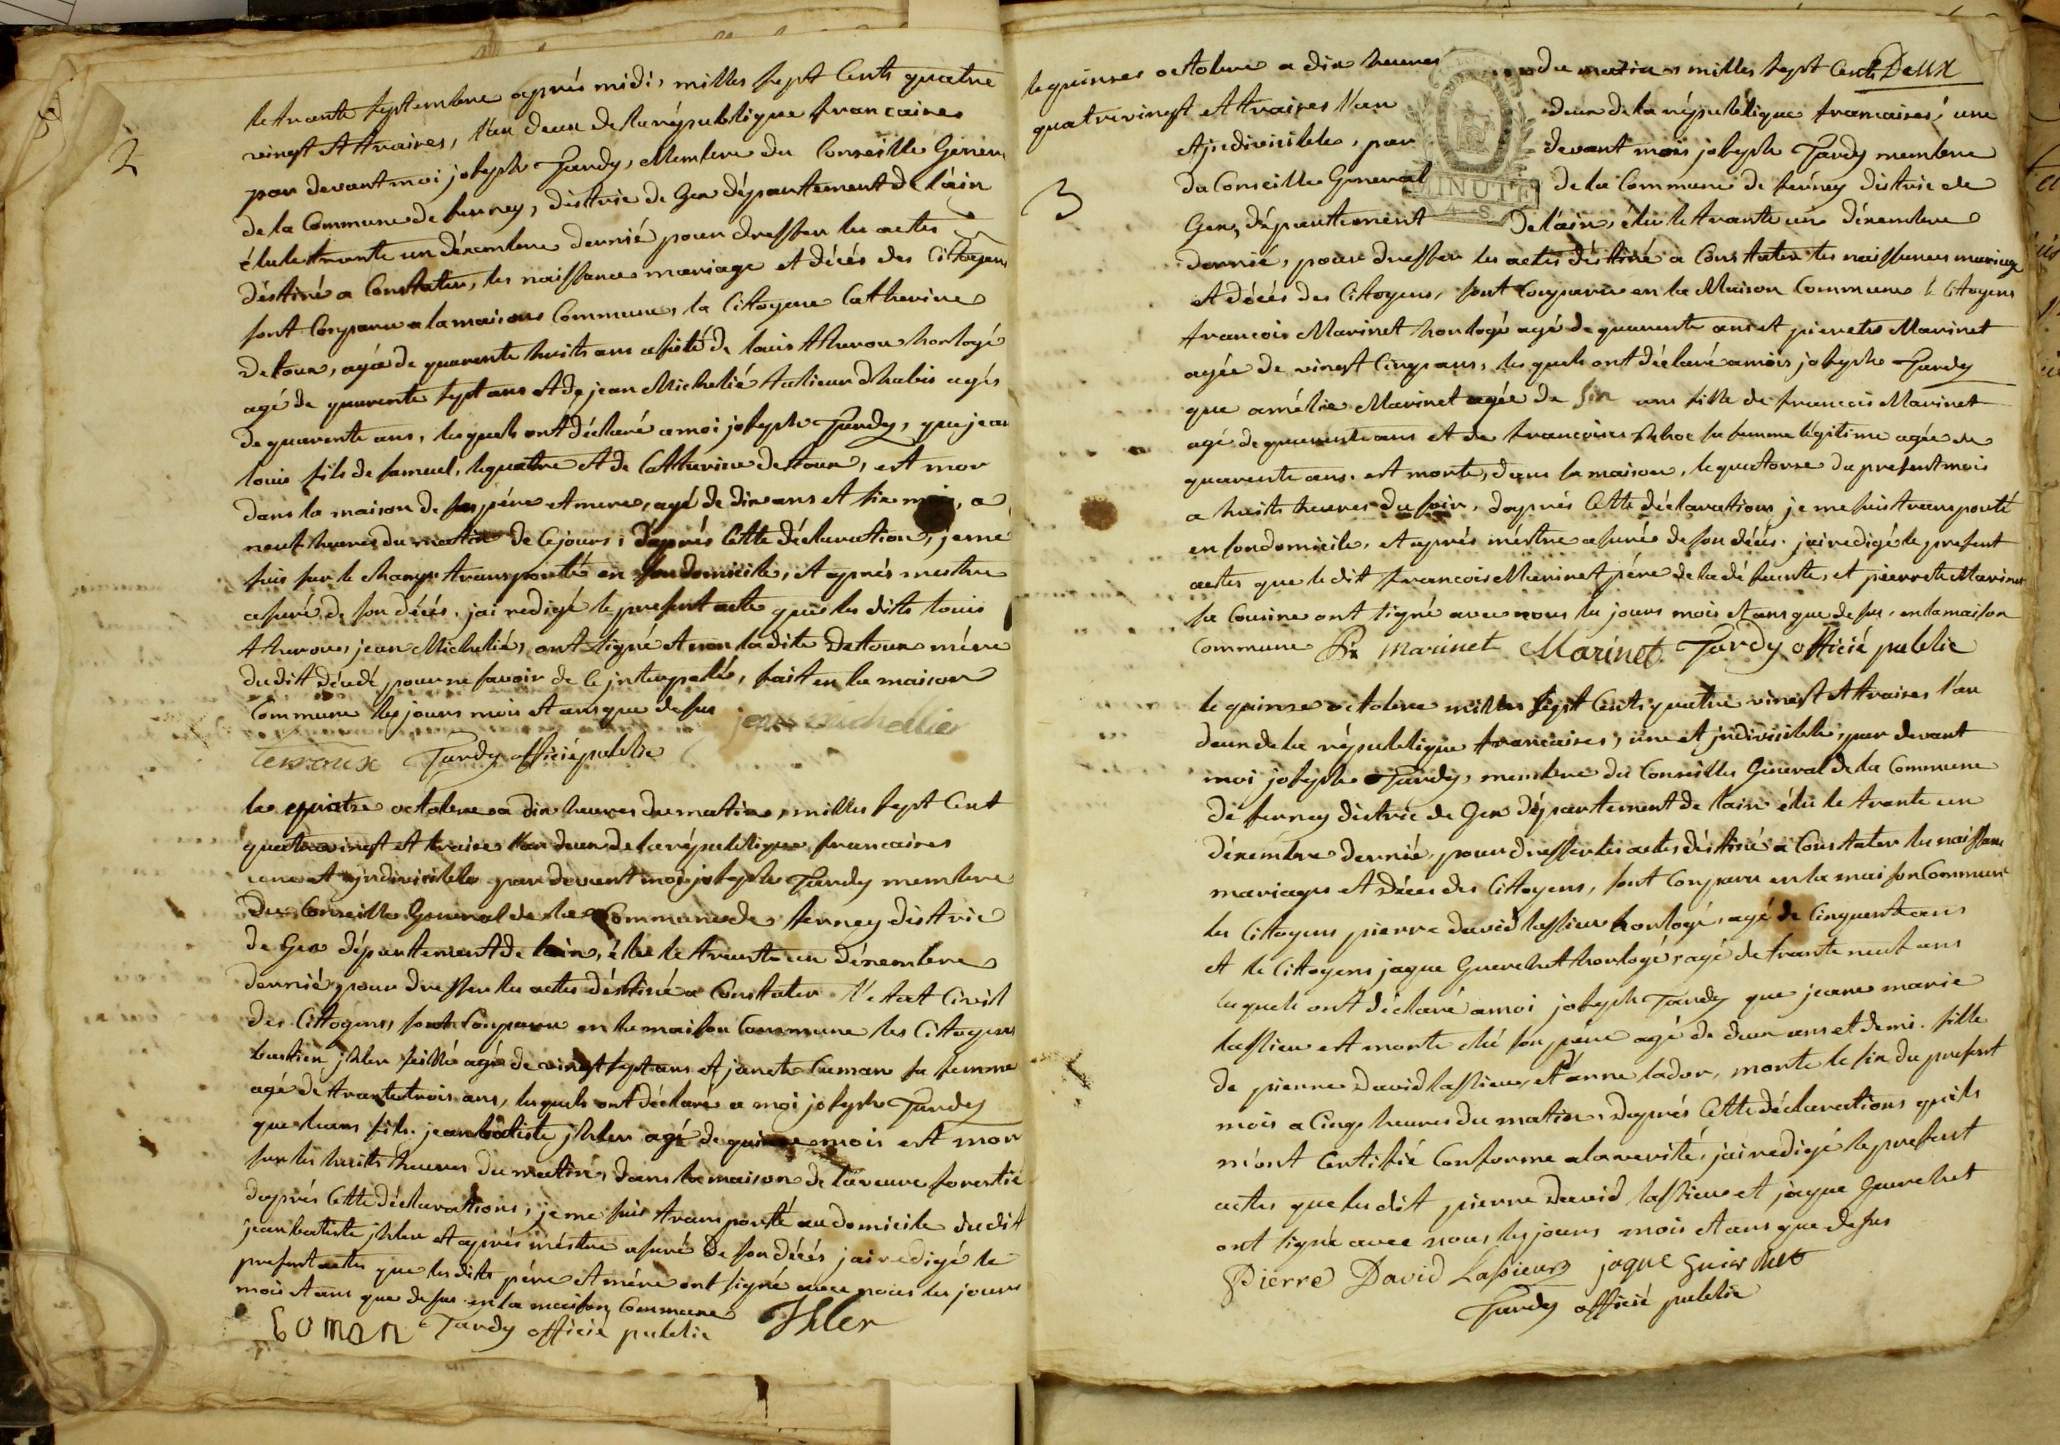 2
le trante septembre aprés midi, milles sept Cents quatre
vinegt et traizes, l'an deux de la république francaises
par devant moi joseph Tardy, Membre du Conseille Géner
de la Commune de ferney, distric de Gex département de l'ain
élu le trante un décembre dernié pour dresser les actes
déstiné a Constater, les naissance mariage et décés des Citoyens
sont Conparu a la maisons Commune, la Citoyene Catherine
Detour, agée de quarente huits ans asisté de louis therou horlogé
agé de quarente sept ans et de jean Michelié talieur d'habis agés
de quarente ans, lesquels ont déclaré a moi joseph Tardy, que jean
louis fils de samuel, lequatre et de Catherine detour, est mor
dans la maison de ses pére et mere, agé de dix ans et six mois, a
neuf heures du matin de ce jours, d'aprés Cette déclaration, je me
suis sur le champs transporté en son domicile, et aprés mestre
asuré de son décés, jai redigé le present acte que les dits louis
therou, jean Michelié, ont signé et non la dite Detour mére
du dit décédé pour ne savoir de ce interpellé, fait en la maison
Commune les jours mois et ans que desus jean michellier
terroux Tardy officié public
le quatre octobre a dix heures du matin, milles sept Cent
quatre vinegt et traise l'an deux de la république francaises
une et indivisible par devant moi joseph Tardy membre
du Conseille General de la Commune de ferney distric
de Gex département de lain, élu le trante un décembre
dernié, pour dresser les actes déstiné a Constater l'etat Civil
des Citoyens, sont Conparu en la maison Commune les Citoyens
agé de vinegt sept ans et janete Cuman sa femme
agé de trante trois ans, lesquels ont déclaré a moi joseph Tardy
que leurs fils jean batiste jhler agé de quinze mois est mor
sur les huits heures du matins, dans la maison de la veuve forestié
daprés Cette déclarations, je me suis transporté au domicile dudit
jean batiste jhler et aprés méstre asuré de son décés jai redigé le
present actes que les dits pére et mére ont signé avec nous les jours
mois et ans que desus en la maison Commune
Coman Tardy officié public Ihler
3
le quinzes octobre a dix heures du matin milles sept Cents Deux
quatre vinegt et traizes l'an deux de la république francaises, une
et indivisibles, par devant mois joseph Tardy membre
du Conseille General de la Commune de ferney distric de
MINUTE
4 S.
Gex, département De lain, élu le trante un décembre
dernié, pour dresser les actes déstiné a Constater les naissences mariage
et décés des Citoyens, sont Conparu en la Maison Commune le Citoyens
francois Marinet horlogé agé de quarente ans et pierete Marinet
agée de vinegt Cinq ans, lesquels ont déclaré a mois joseph Tardy
que amélie Marinet agée de six ans fille de francois Marinet
agé de quarente ans et de francoises sa femme légitime agée de
quarente ans, est morte, dans la maison, le quatorze du present mois
a huits heures du soir, daprés Cette déclarations je me suis transporté
en son domicile, et aprés méstre asuré de son décés, jai redigé le present
actes que le dit francois Marinet pére de la défeunte, et pierrete Marinet
sa Cousine ont signé avec nous les jours mois et ans que desus, en la maison
Commune Pre marinet Marinet Tardy officié public
le quinze octobre milles sept Cents quatre vinegt et traizes l'an
deux de la république francaises, une et indivisible, par devant
moi joseph Tardy, membre du Conseilles Général de la Commune
de ferney distric de Gex département de lain élu le trante un
décembre dernié, pour dresser les actes déstiné a Constater les naissance
mariages et Décés des Citoyens, sont Conparu en la maison Commune
les Citoyens pierre david lassieur horlogé, agé de Cinquente ans
et le Citoyens jaque Guerchet horlogé, agé de trante neuf ans
lesquels ont déclaré a moi joseph Tardy que jeane marie
lassieur est morte ché son pére agé de deux ans et demi. fille
de pierre David lassieur, et d'anne lador, morte le six du present
mois a Cinq heures du matin, daprés Cette déclarations quils
m'ont Certifié Conforme a la verité, jai redigé le present
actes que lesdit pierre David lassieur et jaque Guerchet
ont signé avec nous les jours mois et ans que desus
Pierre David Lassieur jaque guerchet
Tardy officié public